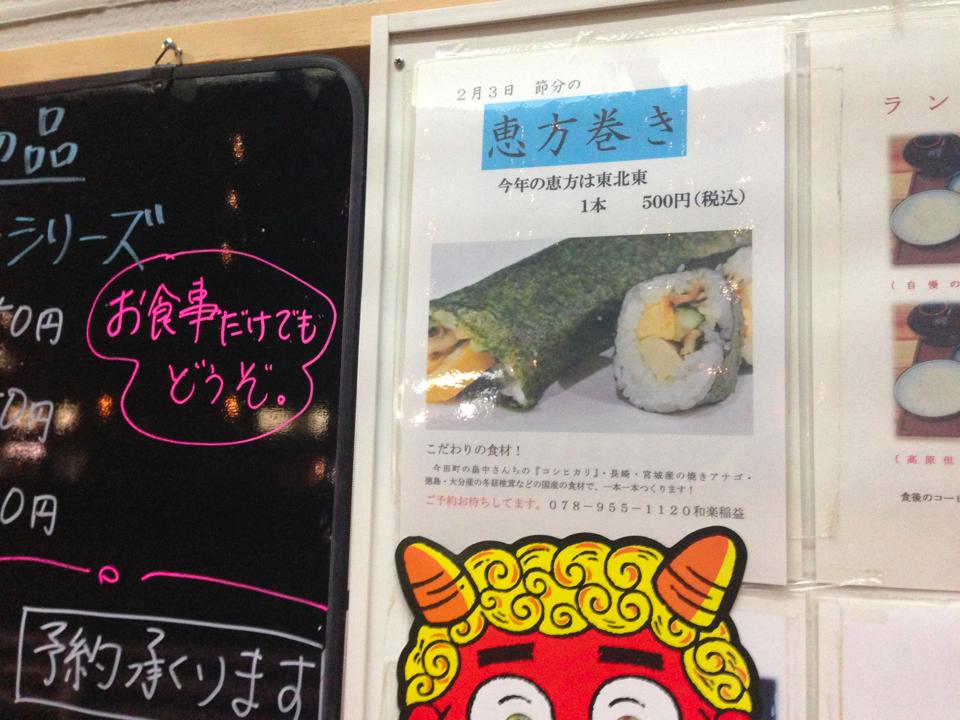 の品
シリーズ
0円
お食事だけでも
どうぞ。
0円
0円
予約承ります
2月3日 節分の
恵方巻き
今年の恵方は東北東
1本 500円(税込)
こだわりの食材!
今田町の畠中さんちの『コシヒカリ』・長崎・宮城産の焼きアナゴ・
徳島・大分産の冬菇椎茸などの国産の食材で、一本一本つくります!
ご予約お待ちしてます。078-955-1120和楽稲益
ラン
(自慢の
(高原但
食後のコーヒ